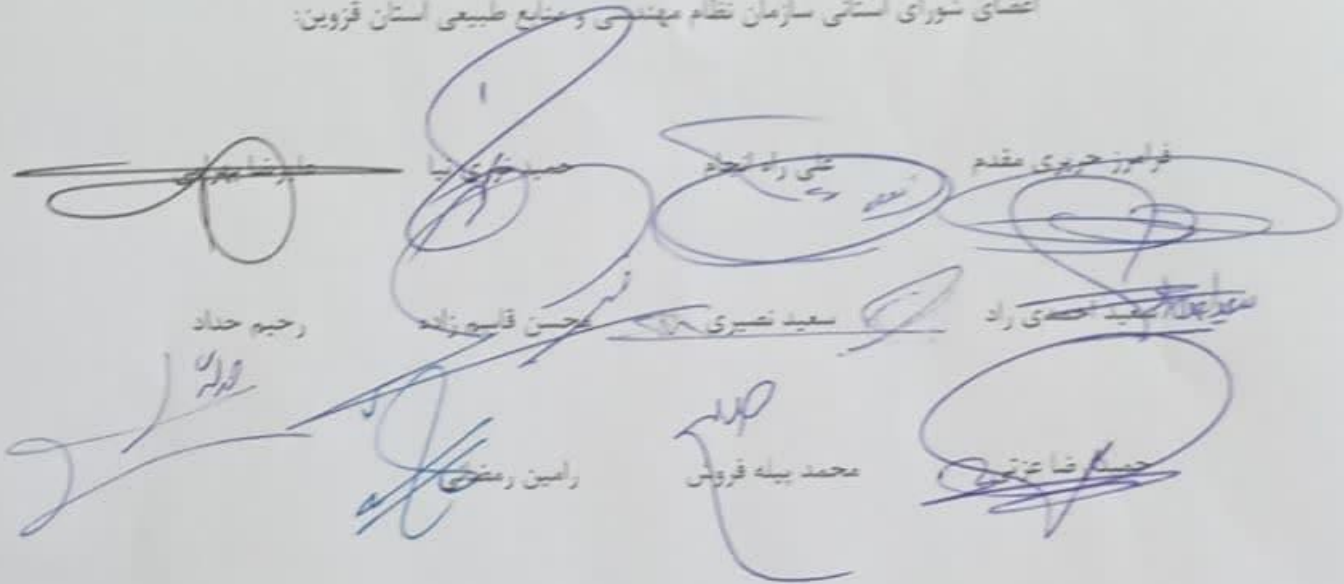 اعضای شورای استانی سازمان نظام مهندسی و منابع طبیعی استان قزوین:
فرامرز حریری مقدم علی راد حمید نیا علیرضا
سعید احمدی راد سعید نصیری محسن قاسم زاده رحیم حداد
حمید رضا عزتی محمد پیله فروش رامین رمضانی